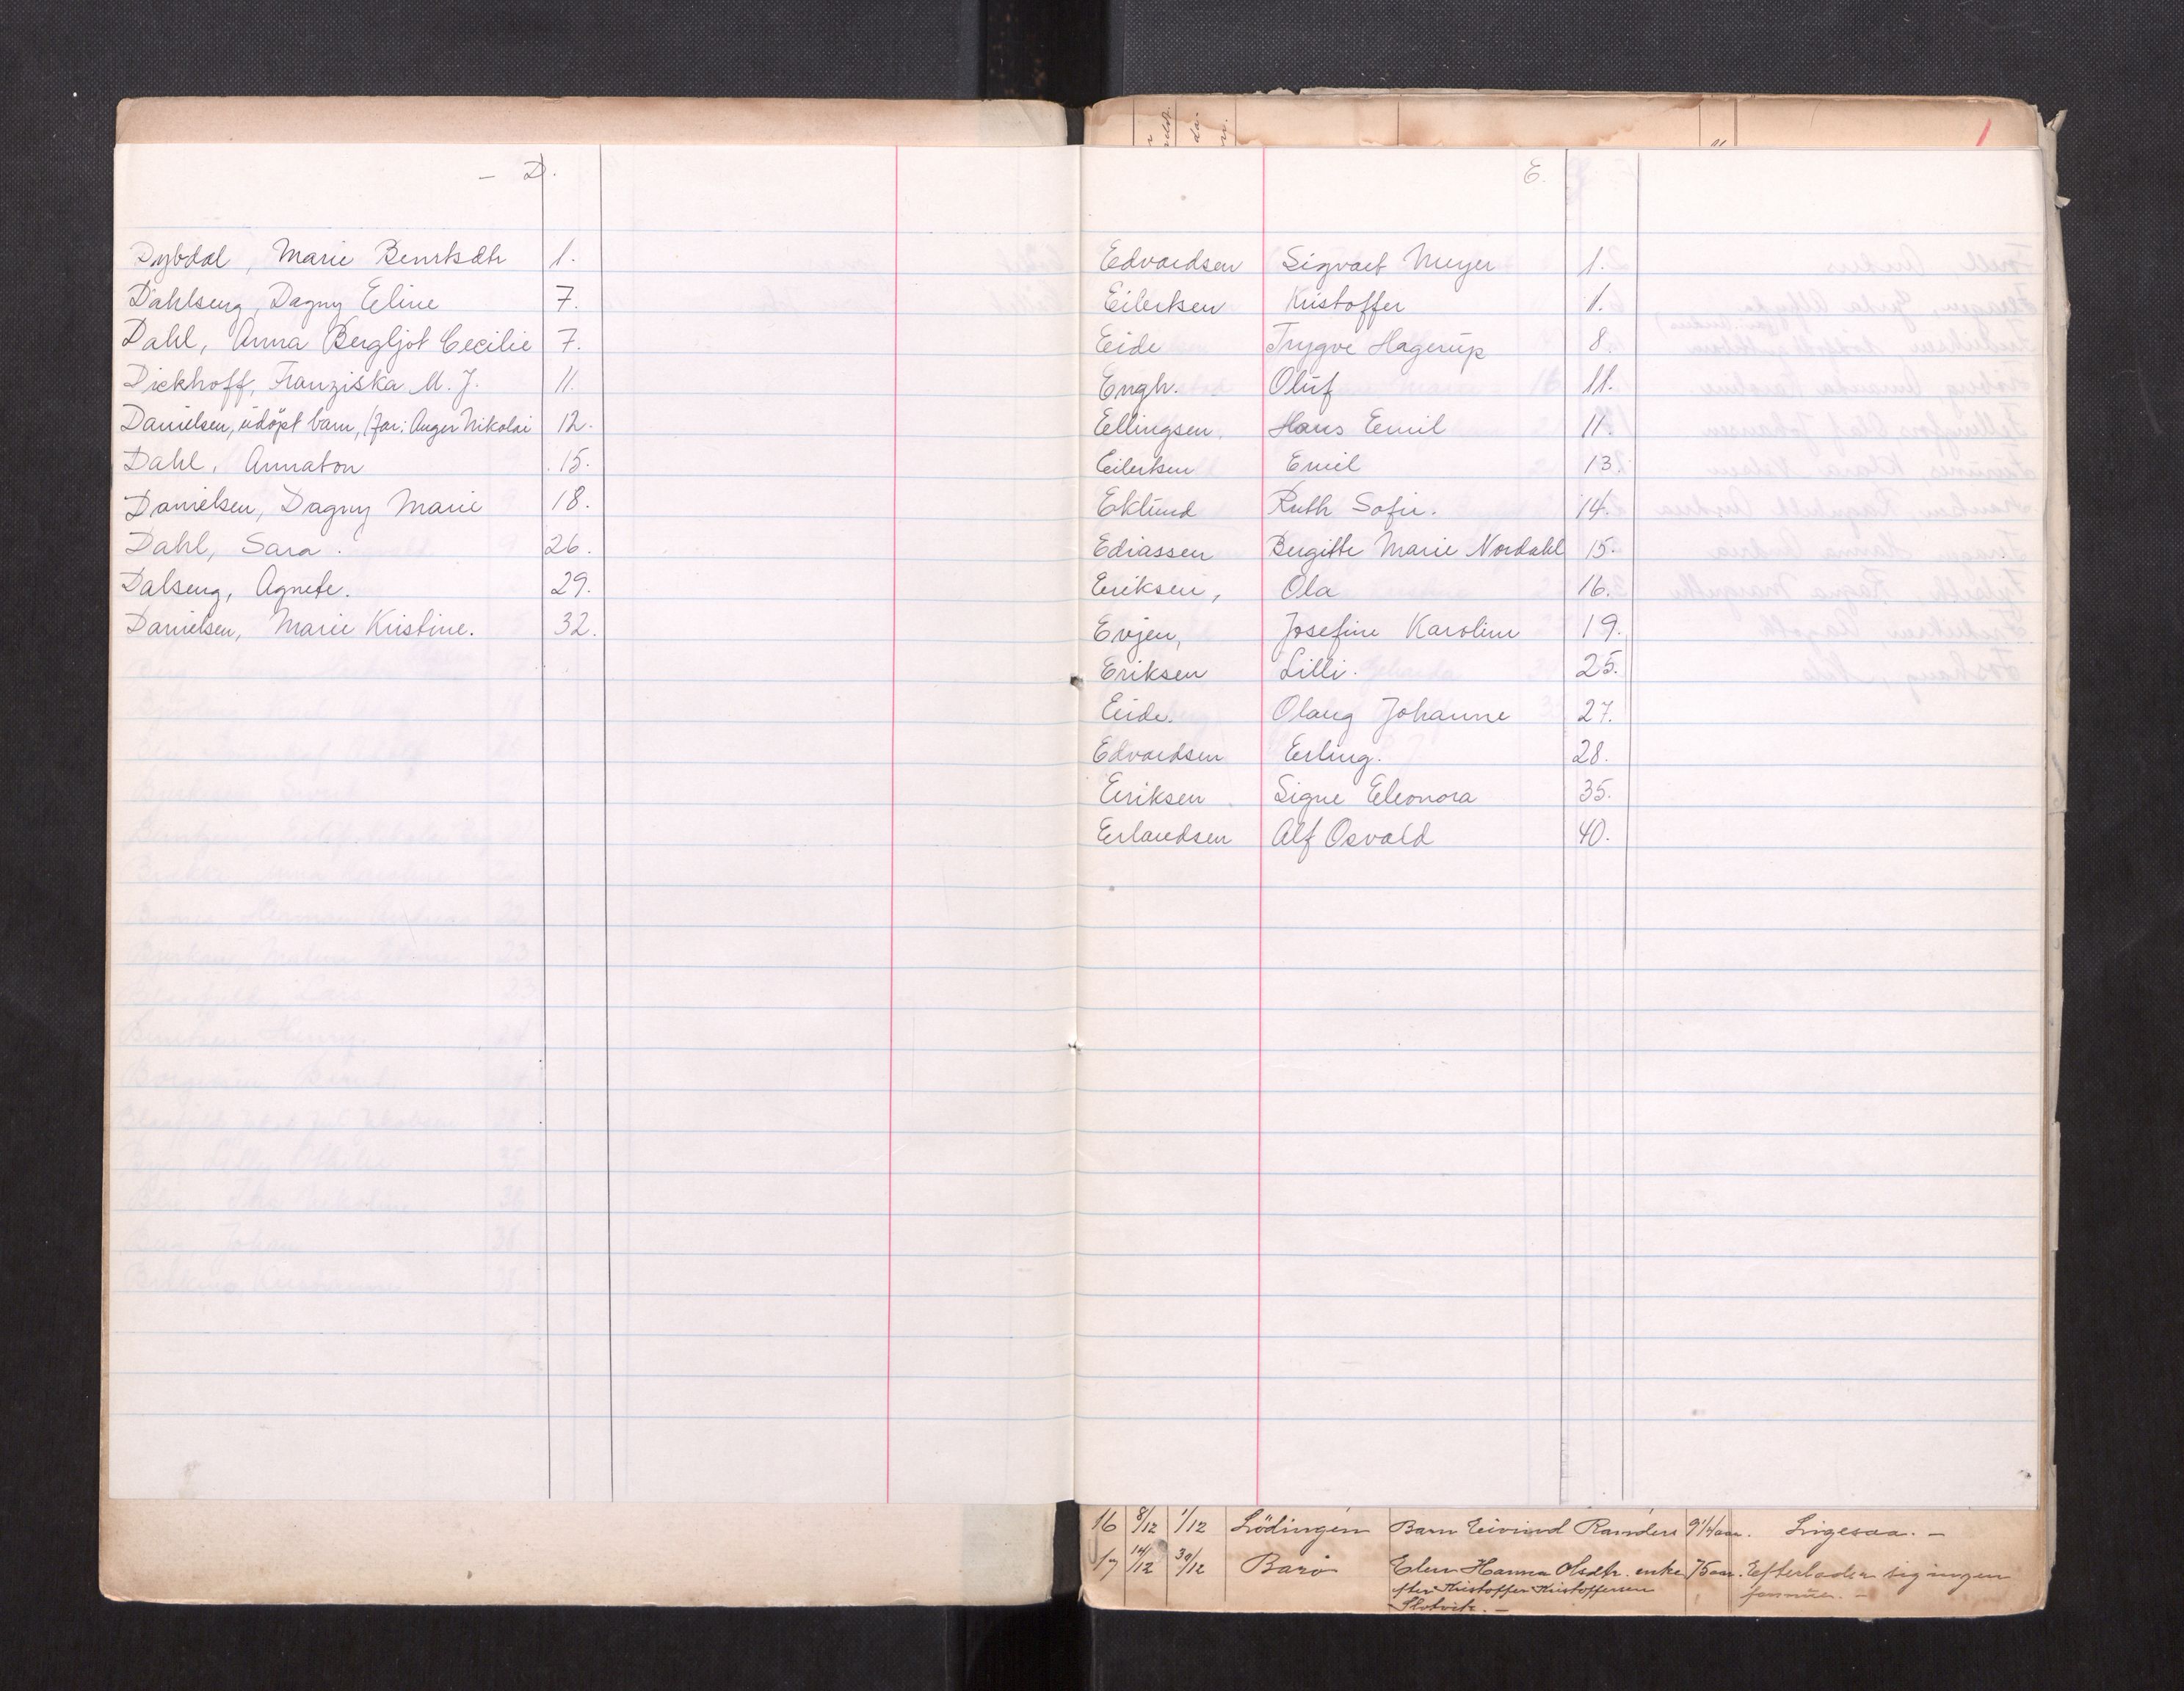 – D.
Dybdal, Marie Berntsdtr 1.
Dahlseng, Dagny Eline 7.
Dahl, Anna Bergljot Cecilie 7.
Dickhoff, Franziska M. J. 11.
Danielsen, udöpt barn, (far: Anger Nikolai 12.
Dahl, Annaton 15.
Danielsen, Dagny Marie 18.
Dahl, Sara. 26.
Dalseng, Agnete. 29.
Danielsen, Marie Kristine. 32.
1
E.
Edvardsen Sigvart Meyer 1.
Eilertsen Kristoffer 1.
Eide Trygve Hagerup 8.
Engh. Oluf 11.
Ellingsen. Hans Emil 11.
Eilertsen Emil 13.
Eklund Ruth Sofie. 14.
Ediassen Bergitte Marie Nordahl 15.
Eriksen, Ola 16.
Evjen, Josefine Karoline 19.
Eriksen Lilli. 25.
Eide. Olaug Johanne 27.
Edvardsen Erling. 28.
Eriksen Signe Eleonora 35.
Erlandsen Alf Osvald 40.
16 8/12 1/12 Lödingen Barn Eivind Randers 9 1/4 aar. Ligesaa. –
17 14/12 30/12 Barö Elen Hanna Olsdtr. enke 75 aar. Efterlader sig ingen
efter Kristoffer Kristoffersen formue. –
Slotvik. –